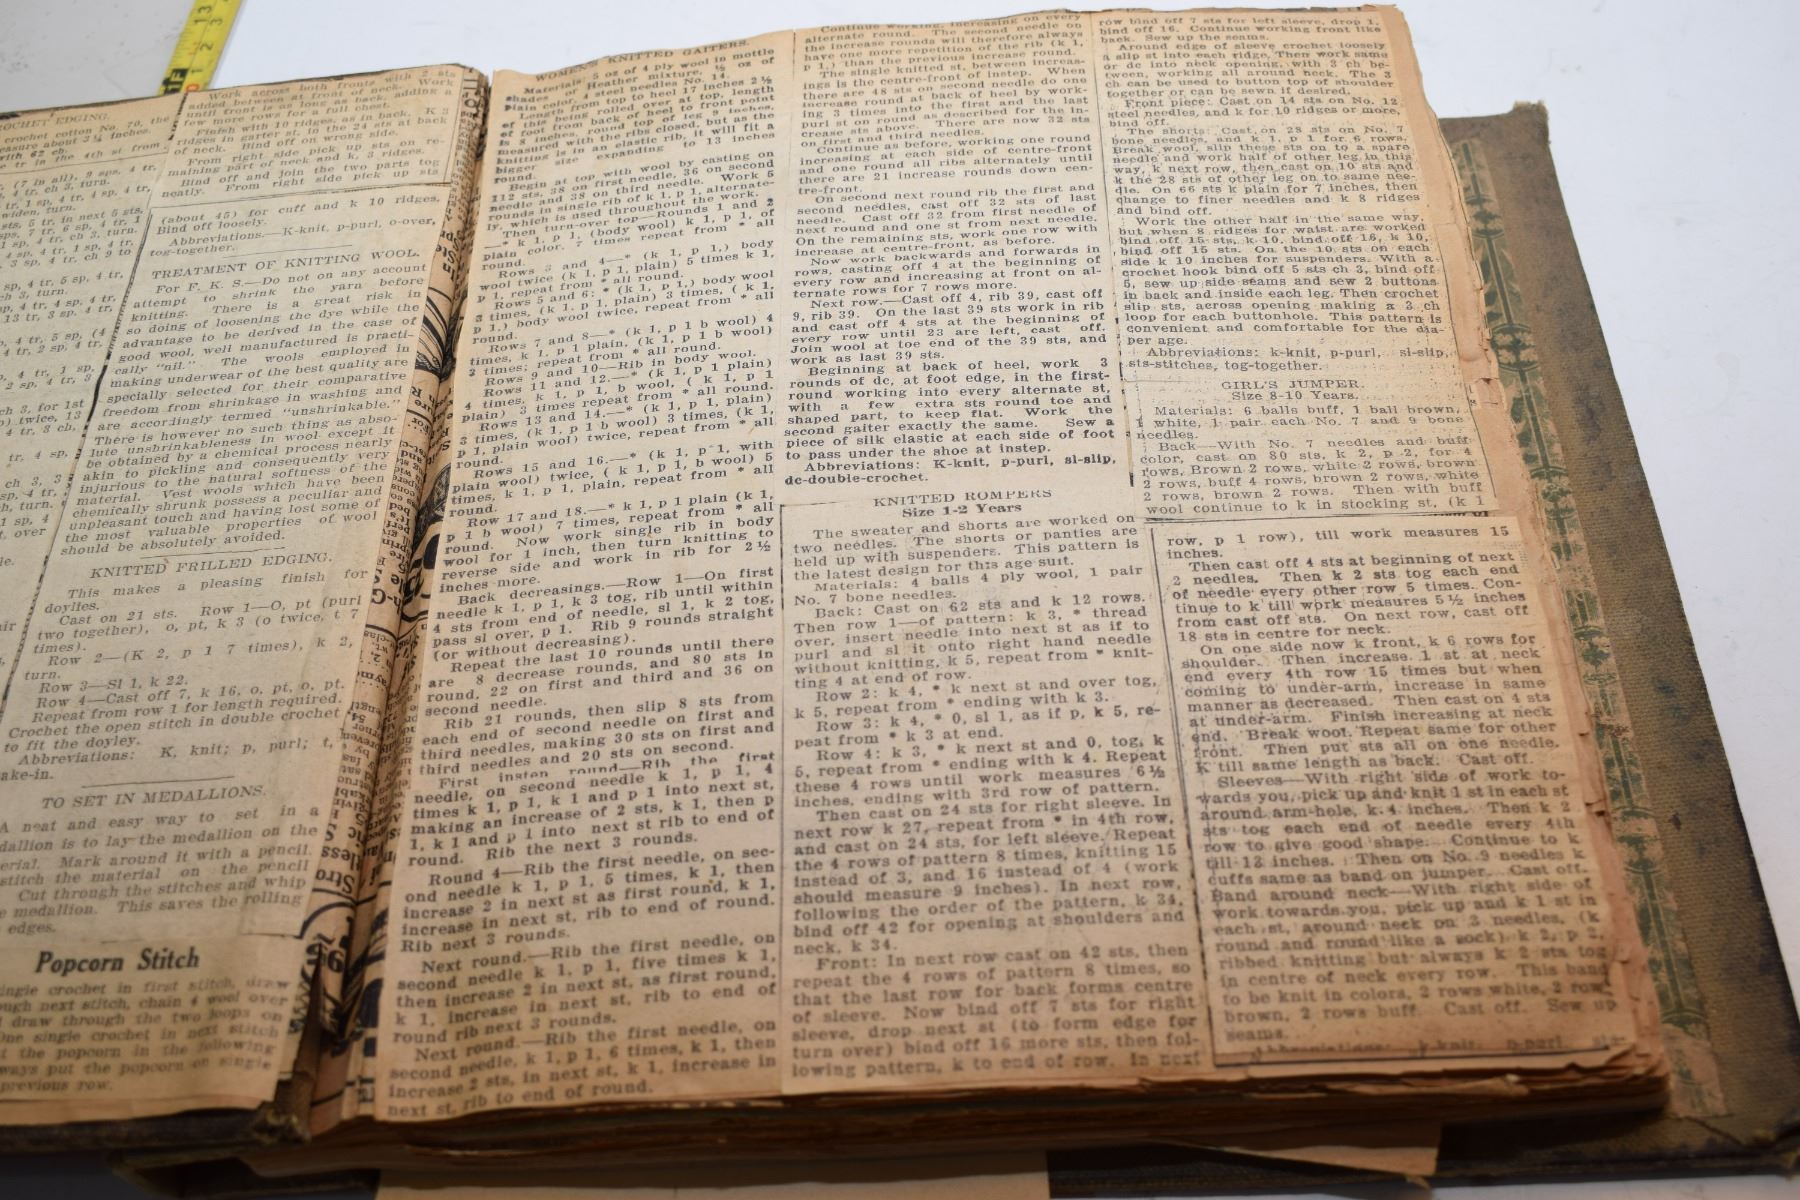 Work across both fronts with 2 sts
added between at front of neck. Work
until front is as long as back, adding a
few more rows for a full chest.
Finish with 10 ridges, as in back. K 3
ridges in garter st, in the 24 sts at back
of neck. Bind off on wrong side.
From right side pick up sts on re-
maining part of neck and k, 3 ridges.
Bind off and join the two parts tog
neatly. From right side pick up sts
(about 45) for cuff and k 10 ridges.
Bind off loosely.
Abbreviations—K-knit, p-purl, o-over,
tog-together.
TREATMENT OF KNITTING WOOL.
For F. K. S.—Do not on any account
attempt to shrink the yarn before
knitting. There is a great risk in
so doing of loosening the dye while the
advantage to be derived in the case of
good wool, well manufactured is practi-
cally "nil." The wools employed in
making underwear of the best quality are
specially selected for their comparative
freedom from shrinkage in washing and
are accordingly termed "unshrinkable."
There is however no such thing as abso-
lute unshrinkableness in wool except it
be obtained by a chemical process nearly
akin to pickling and consequently very
injurious to the natural softness of the
material. Vest wools which have been
chemically shrunk possess a peculiar and
unpleasant touch and having lost some of
the most valuable properties of wool
should be absolutely avoided.
KNITTED FRILLED EDGING.
This makes a pleasing finish for
doylies.
Cast on 21 sts. Row 1—O, pt (purl
two together), o, pt, k 3 (o twice, t 7
times).
Row 2—(K 2, p 1 7 times), k 2,
turn.
Row 3—Sl 1, k 22.
Row 4—Cast off 7, k 16, o, pt, o, pt.
Repeat from row 1 for length required.
Crochet the open stitch in double crochet
to fit the doyley.
Abbreviations: K, knit; p, purl; t,
TO SET IN MEDALLIONS.
A neat and easy way to set in a
medallion is to lay the medallion on the
material. Mark around it with a pencil.
stitch the material on the pencil
Cut through the stitches and whip
medallion. This saves the rolling
edges.
Popcorn Stitch
single crochet in first stitch, draw
through next stitch, chain 4 wool over
draw through the two loops on
One single crochet in next stitch
the popcorn in the following
always put the popcorn on single
previous row.
WOMEN'S KNITTED GAITERS.
Materials: 5 oz of 4 ply wool in mottle
shades or Heather mixture. ½ oz of
plain color. 4 steel needles No. 14.
Length from top to heel 17 inches 2½
of this being rolled over at top, length
of foot from back of heel to front point
is 8 inches, round top of leg 9 inches
measured with the ribs closed, but as the
knitting is in an elastic rib, it will fit a
bigger size expanding to 13 inches
round.
Begin at top with wool by casting on
112 sts, 38 on first needle, 36 on second
needle and 38 on third needle. Work 5
rounds in single rib of k 1, p 1, alternate-
ly, which is used throughout the work.
Then turn-over top—Rounds 1 and 2
—* k 1, p 1, (body wool) k 1, p 1, of
plain color, 7 times repeat from * all
round.
Rows 3 and 4—* (k 1, p 1,) body
wool twice (k 1, p 1, plain) 5 times k 1,
p 1, repeat from * all round.
Rows 5 and 6: * (k 1, p 1,) body wool
3 times, (k 1, p 1, plain) 3 times, ( k 1,
p 1,) body wool twice, repeat from * all
round.
Rows 7 and 8—* (k 1, p 1 b wool) 4
times, k 1, p 1 plain, (k 1, p 1 b wool)
3 times; repeat from * all round.
Rows 9 and 10—Rib in body wool.
Rows 11 and 12.—* (k 1, p 1 plain)
4 times, k 1, p 1, b wool, ( k 1, p 1
plain) 3 times repeat from * all round.
Rows 13 and 14.—* (k 1, p 1, plain)
3 times, (k 1, p 1 b wool) 3 times, (k 1,
p 1, plain wool) twice, repeat from * all
round.
Rows 15 and 16.—* (k 1, p 1, with
plain wool) twice, ( k 1, p 1, b wool) 5
times, k 1, p 1, plain, repeat from * all
round.
Row 17 and 18.—* k 1, p 1 plain (k 1,
p 1 b wool) 7 times, repeat from * all
round. Now work single rib in body
wool for 1 inch, then turn knitting to
reverse side and work in rib for 2½
inches more.
Back decreasings.—Row 1—On first
needle k 1, p 1, k 3 tog, rib until within
4 sts from end of needle, sl 1, k 2 tog,
pass sl over, p 1. Rib 9 rounds straight
(or without decreasing).
Repeat the last 10 rounds until there
are 8 decrease rounds, and 80 sts in
round. 22 on first and third and 36 on
second needle.
Rib 21 rounds, then slip 8 sts from
each end of second needle on first and
third needles, making 30 sts on first and
third needles and 20 sts on second.
First instep round—Rib the first
needle, on second needle k 1, p 1, 4
times k 1, p 1, k 1 and p 1 into next st,
making an increase of 2 sts, k 1, then p
1, k 1 and p 1 into next st rib to end of
round. Rib the next 3 rounds.
Round 4—Rib the first needle, on sec-
ond needle k 1, p 1, 5 times, k 1, then
increase 2 in next st as first round, k 1,
increase in next st, rib to end of round.
Rib next 3 rounds.
Next round.—Rib the first needle, on
second needle k 1, p 1, five times k 1,
then increase 2 in next st, as first round,
k 1, increase in next st, rib to end of
round rib next 3 rounds.
Next round.—Rib the first needle, on
second needle, k 1, p 1, 6 times, k 1, then
increase 2 sts, in next st, k 1, increase in
next st, rib to end of round.
Continue working, increasing on every
alternate round. The second needle on
the increase rounds will therefore always
have one more repetition of the rib (k 1,
p 1,) than the previous increase round.
The single knitted st, between increas-
ings is the centre-front of instep. When
there are 48 sts on second needle do one
increase round at back of heel by work-
ing 3 times into the first and the last
purl st on round as described for the in-
crease sts above. There are now 32 sts
on first and third needles.
Continue as before, working one round
increasing at each side of centre-front
and one round all ribs alternately until
there are 21 increase rounds down cen-
tre-front.
On second next round rib the first and
second needles, cast off 32 sts of last
needle. Cast off 32 from first needle of
next round and one st from next needle.
On the remaining sts, work one row with
increase at centre-front, as before.
Now work backwards and forwards in
rows, casting off 4 at the beginning of
every row and increasing at front on al-
ternate rows for 7 rows more.
Next row.—Cast off 4, rib 39, cast off
9, rib 39. On the last 39 sts work in rib
and cast off 4 sts at the beginning of
every row until 23 are left, cast off.
Join wool at toe end of the 39 sts, and
work as last 39 sts.
Beginning at back of heel, work 3
rounds of dc, at foot edge, in the first-
round working into every alternate st,
with a few extra sts round toe and
shaped part, to keep flat. Work the
second gaiter exactly the same. Sew a
piece of silk elastic at each side of foot
to pass under the shoe at instep.
Abbreviations: K-knit, p-purl, sl-slip,
dc-double-crochet.
KNITTED ROMPERS
Size 1-2 Years
The sweater and shorts are worked on
two needles. The shorts or panties are
held up with suspenders. This pattern is
the latest design for this age suit.
Materials: 4 balls 4 ply wool, 1 pair
No. 7 bone needles.
Back: Cast on 62 sts and k 12 rows.
Then row 1—of pattern: k 3, * thread
over, insert needle into next st as if to
purl and sl it onto right hand needle
without knitting, k 5, repeat from * knit-
ting 4 at end of row.
Row 2: k 4, * k next st and over tog,
k 5, repeat from * ending with k 3.
Row 3: k 4, * 0, sl 1, as if p, k 5, re-
peat from * k 3 at end.
Row 4: k 3, * k next st and 0, tog, k
5, repeat from * ending with k 4. Repeat
these 4 rows until work measures 6½
inches, ending with 3rd row of pattern.
Then cast on 24 sts for right sleeve. In
next row k 27, repeat from * in 4th row,
and cast on 24 sts, for left sleeve. Repeat
the 4 rows of pattern 8 times, knitting 15
instead of 3, and 16 instead of 4 (work
should measure 9 inches). In next row,
following the order of the pattern, k 34,
bind off 42 for opening at shoulders and
neck, k 34.
Front: In next row cast on 42 sts, then
repeat the 4 rows of pattern 8 times, so
that the last row for back forms centre
of sleeve. Now bind off 7 sts for right
sleeve, drop next st (to form edge for
turn over) bind off 16 more sts, then fol-
lowing pattern, k to end of row. In next
row bind off 7 sts for left sleeve, drop 1,
bind off 16. Continue working front like
back. Sew up the seams.
Around edge of sleeve crochet loosely
a slip st into each ridge. Then work same
or dc into neck opening, with 3 ch be-
tween, working all around neck. The 3
ch can be used to button top of shoulder
together or can be sewn if desired.
Front piece: Cast on 14 sts on No. 12
steel needles, and k for 10 ridges or more,
bind off.
The shorts: Cast on 28 sts on No. 7
bone needles, and k 1, p 1 for 6 rows.
Break wool, slip these sts on to a spare
needle and work half of other leg in this
way, k next row, then cast on 10 sts and
k the 28 sts of other leg on to same nee-
dle. On 66 sts k plain for 7 inches, then
change to finer needles and k 8 ridges
and bind off.
Work the other half in the same way,
but when 8 ridges for waist are worked
bind off 15 sts, k 10, bind off 16, k 10,
bind off 15 sts. On the 10 sts on each
side k 10 inches for suspenders. With a
crochet hook bind off 5 sts ch 3, bind off
5, sew up side seams and sew 2 buttons
in back and inside each leg. Then crochet
slip sts, across opening making a 3 ch
loop for each buttonhole. This pattern is
convenient and comfortable for the dia-
per age.
Abbreviations: k-knit, p-purl, sl-slip,
sts-stitches, tog-together.
GIRL'S JUMPER.
Size 8-10 Years.
Materials: 6 balls buff, 1 ball brown,
1 white, 1 pair each No. 7 and 9 bone
needles.
Back—With No. 7 needles and buff
color, cast on 80 sts, k 2, p 2, for 4
rows, Brown 2 rows, white 2 rows, brown
2 rows, buff 4 rows, brown 2 rows, white
2 rows, brown 2 rows. Then with buff
wool continue to k in stocking st, (k 1
row, p 1 row), till work measures 15
inches.
Then cast off 4 sts at beginning of next
2 needles. Then k 2 sts tog each end
of needle every other row 5 times. Con-
tinue to k till work measures 5½ inches
from cast off sts. On next row, cast off
18 sts in centre for neck.
On one side now k front, k 6 rows for
shoulder. Then increase 1 st at neck
end every 4th row 15 times but when
coming to under-arm, increase in same
manner as decreased. Then cast on 4 sts
at under-arm. Finish increasing at neck
end. Break wool. Repeat same for other
front. Then put sts all on one needle.
K till same length as back. Cast off.
Sleeves—With right side of work to-
wards you, pick up and knit 1 st in each st
around arm-hole, k 4 inches. Then k 2
sts tog each end of needle every 4th
row to give good shape. Continue to k
till 12 inches. Then on No. 9 needles k
cuffs same as band on jumper. Cast off.
Band around neck—With right side of
work towards you, pick up and k 1 st in
each st, around neck on 3 needles, (k
round and round like a sock) k 2, p 2,
ribbed knitting but always k 2 sts tog
in centre of neck every row. This band
to be knit in colors, 2 rows white, 2 rows
brown, 2 rows buff. Cast off. Sew up
seams.